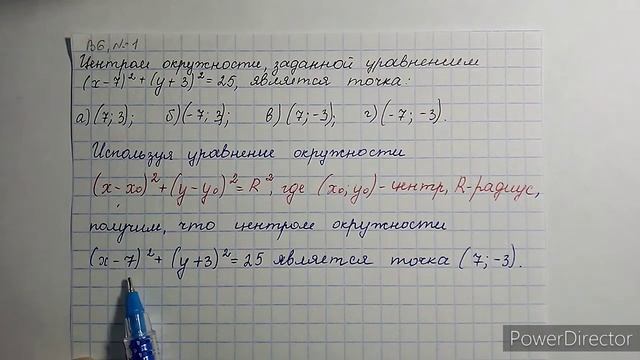 В6, №1
Центром окружности, заданной уравнением
(x-7)²+(y+3)²=25, является точка:
а) (7; 3);    б) (-7; 3);    в) (7; -3);    г) (-7; -3).
Используя уравнение окружности
(x-x₀)²+(y-y₀)²=R², где (x₀; y₀)-центр, R-радиус,
получим, что центром окружности
(x-7)²+(y+3)²=25 является точка (7; -3).
PowerDirector